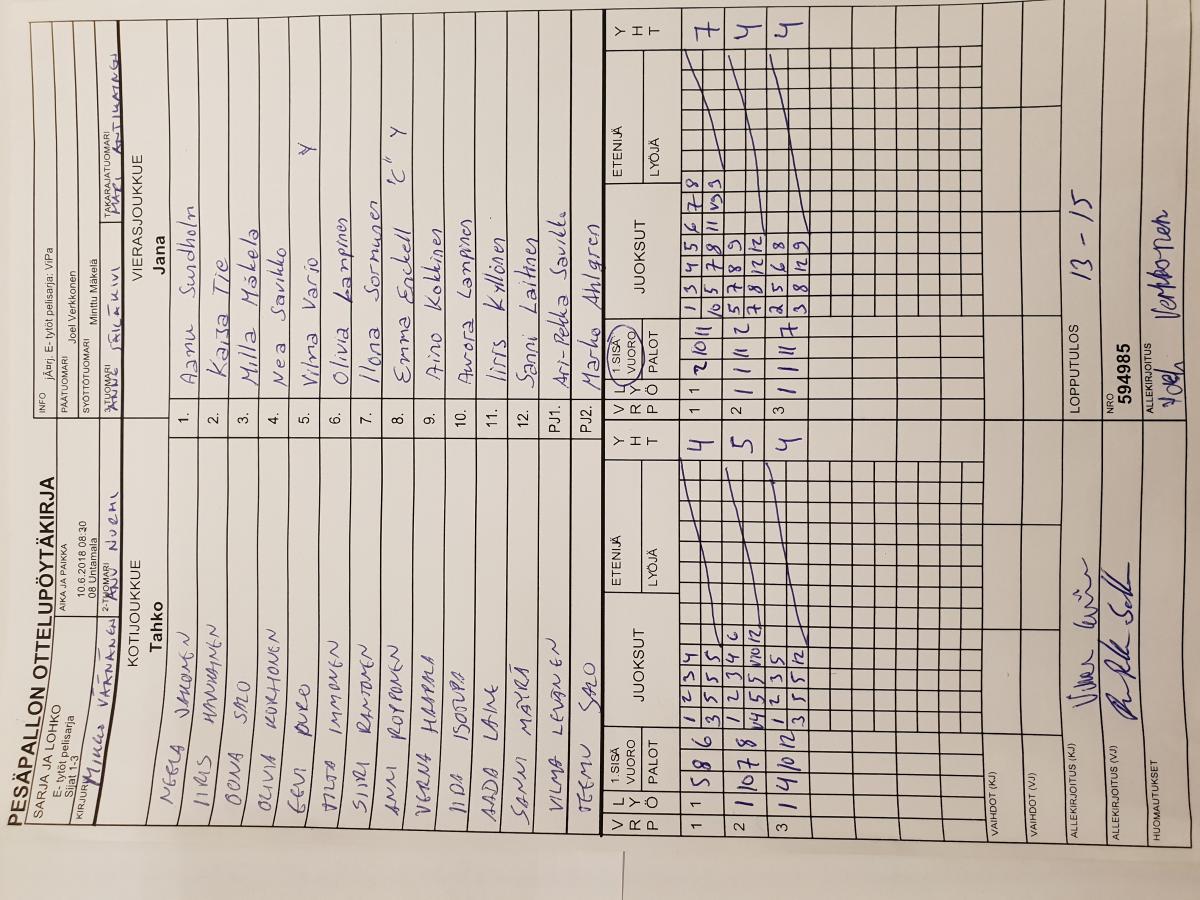 PESÄPALLON OTTELUPÖYTÄKIRJA
SARJA JA LOHKO
E- tytöt pelisarja
Sijat 1-3
AIKA JA PAIKKA
10.6.2018 08:30
08 Untamala
INFO jÄ¤rj. E- tytöt pelisarja: ViPa
PÄÄTUOMARI Joel Verkkonen
SYÖTTÖTUOMARI Minttu Mäkelä
KIRJURI MIKKO VÄÄNÄNEN
2-TUOMARI ANU NURMI
3-TUOMARI ANNE
TAKARAJATUOMARI
KOTIJOUKKUE
Tahko
VIERASJOUKKUE
Jana
NEELA 1. Aamu Sundholm
IIRIS 2. Kaisa Tie
OONA SALO 3. Milla Mäkelä
OLIVIA KORHONEN 4. Nea Savikko
EEVI 5. Vilma Vario Y
IMMONEN 6. Olivia Lampinen
SIIRI RANTANEN 7. Ilona Sormunen
ANNI ROPPONEN 8. Emma Erckell "C" Y
VERNA HAAPALA 9. Aino Kokkinen
IIDA ISOTUPA 10. Aurora Lampinen
AADA LAINE 11. Iiris Kyllönen
SANNI MÄYRÄ 12. Sanni Laitinen
VILMA LEVÄNEN PJ1. Ari-Pekka Savikko
TEEMU SALO PJ2. Marko Ahlgren
V R P L Y Ö 1.SISÄ VUORO PALOT JUOKSUT ETENIJÄ LYÖJÄ Y H T
V R P L Y Ö 1.SISÄ VUORO PALOT JUOKSUT ETENIJÄ LYÖJÄ Y H T
1 1 5 8 6 1 2 3 4 4 1 1 2 10 11 1 3 4 5 6 7 8 7
3 5 5 5 10 5 7 8 11 V3 9
2 1 10 7 8 1 2 3 4 6 5 2 1 1 1 2 5 7 8 9 4
V4 5 5 V10 12 7 8 12 12
3 1 4 10 12 1 2 3 5 4 3 1 1 11 7 2 5 6 8 4
3 5 5 12 3 8 12 9
VAIHDOT (KJ)
VAIHDOT (VJ)
ALLEKIRJOITUS (KJ)
LOPPUTULOS 13 - 15
ALLEKIRJOITUS (VJ)
NRO
594985
HUOMAUTUKSET
ALLEKIRJOITUS
Joel Verkkonen